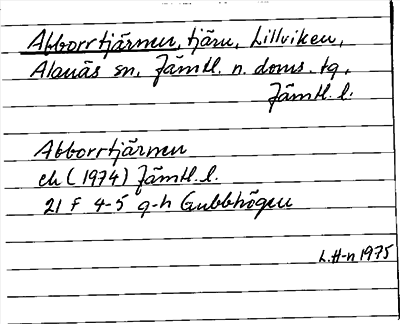 Abborrtjärnen, tjärn, Lillviken,
Alanäs sn, Jämtl. n. doms. tq,
Jämtl. l.
Abborrtjärnen
ek (1974) Jämtl. l.
21 F 4-5 g-h Gubbhögen
L.H-n 1975